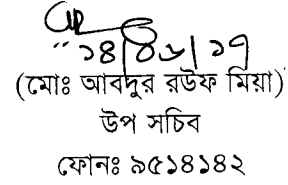 ১৪/০৮/১৭
(মোঃ আবদুর রউফ মিয়া)
উপ সচিব
ফোনঃ ৯৫১৪১৪২